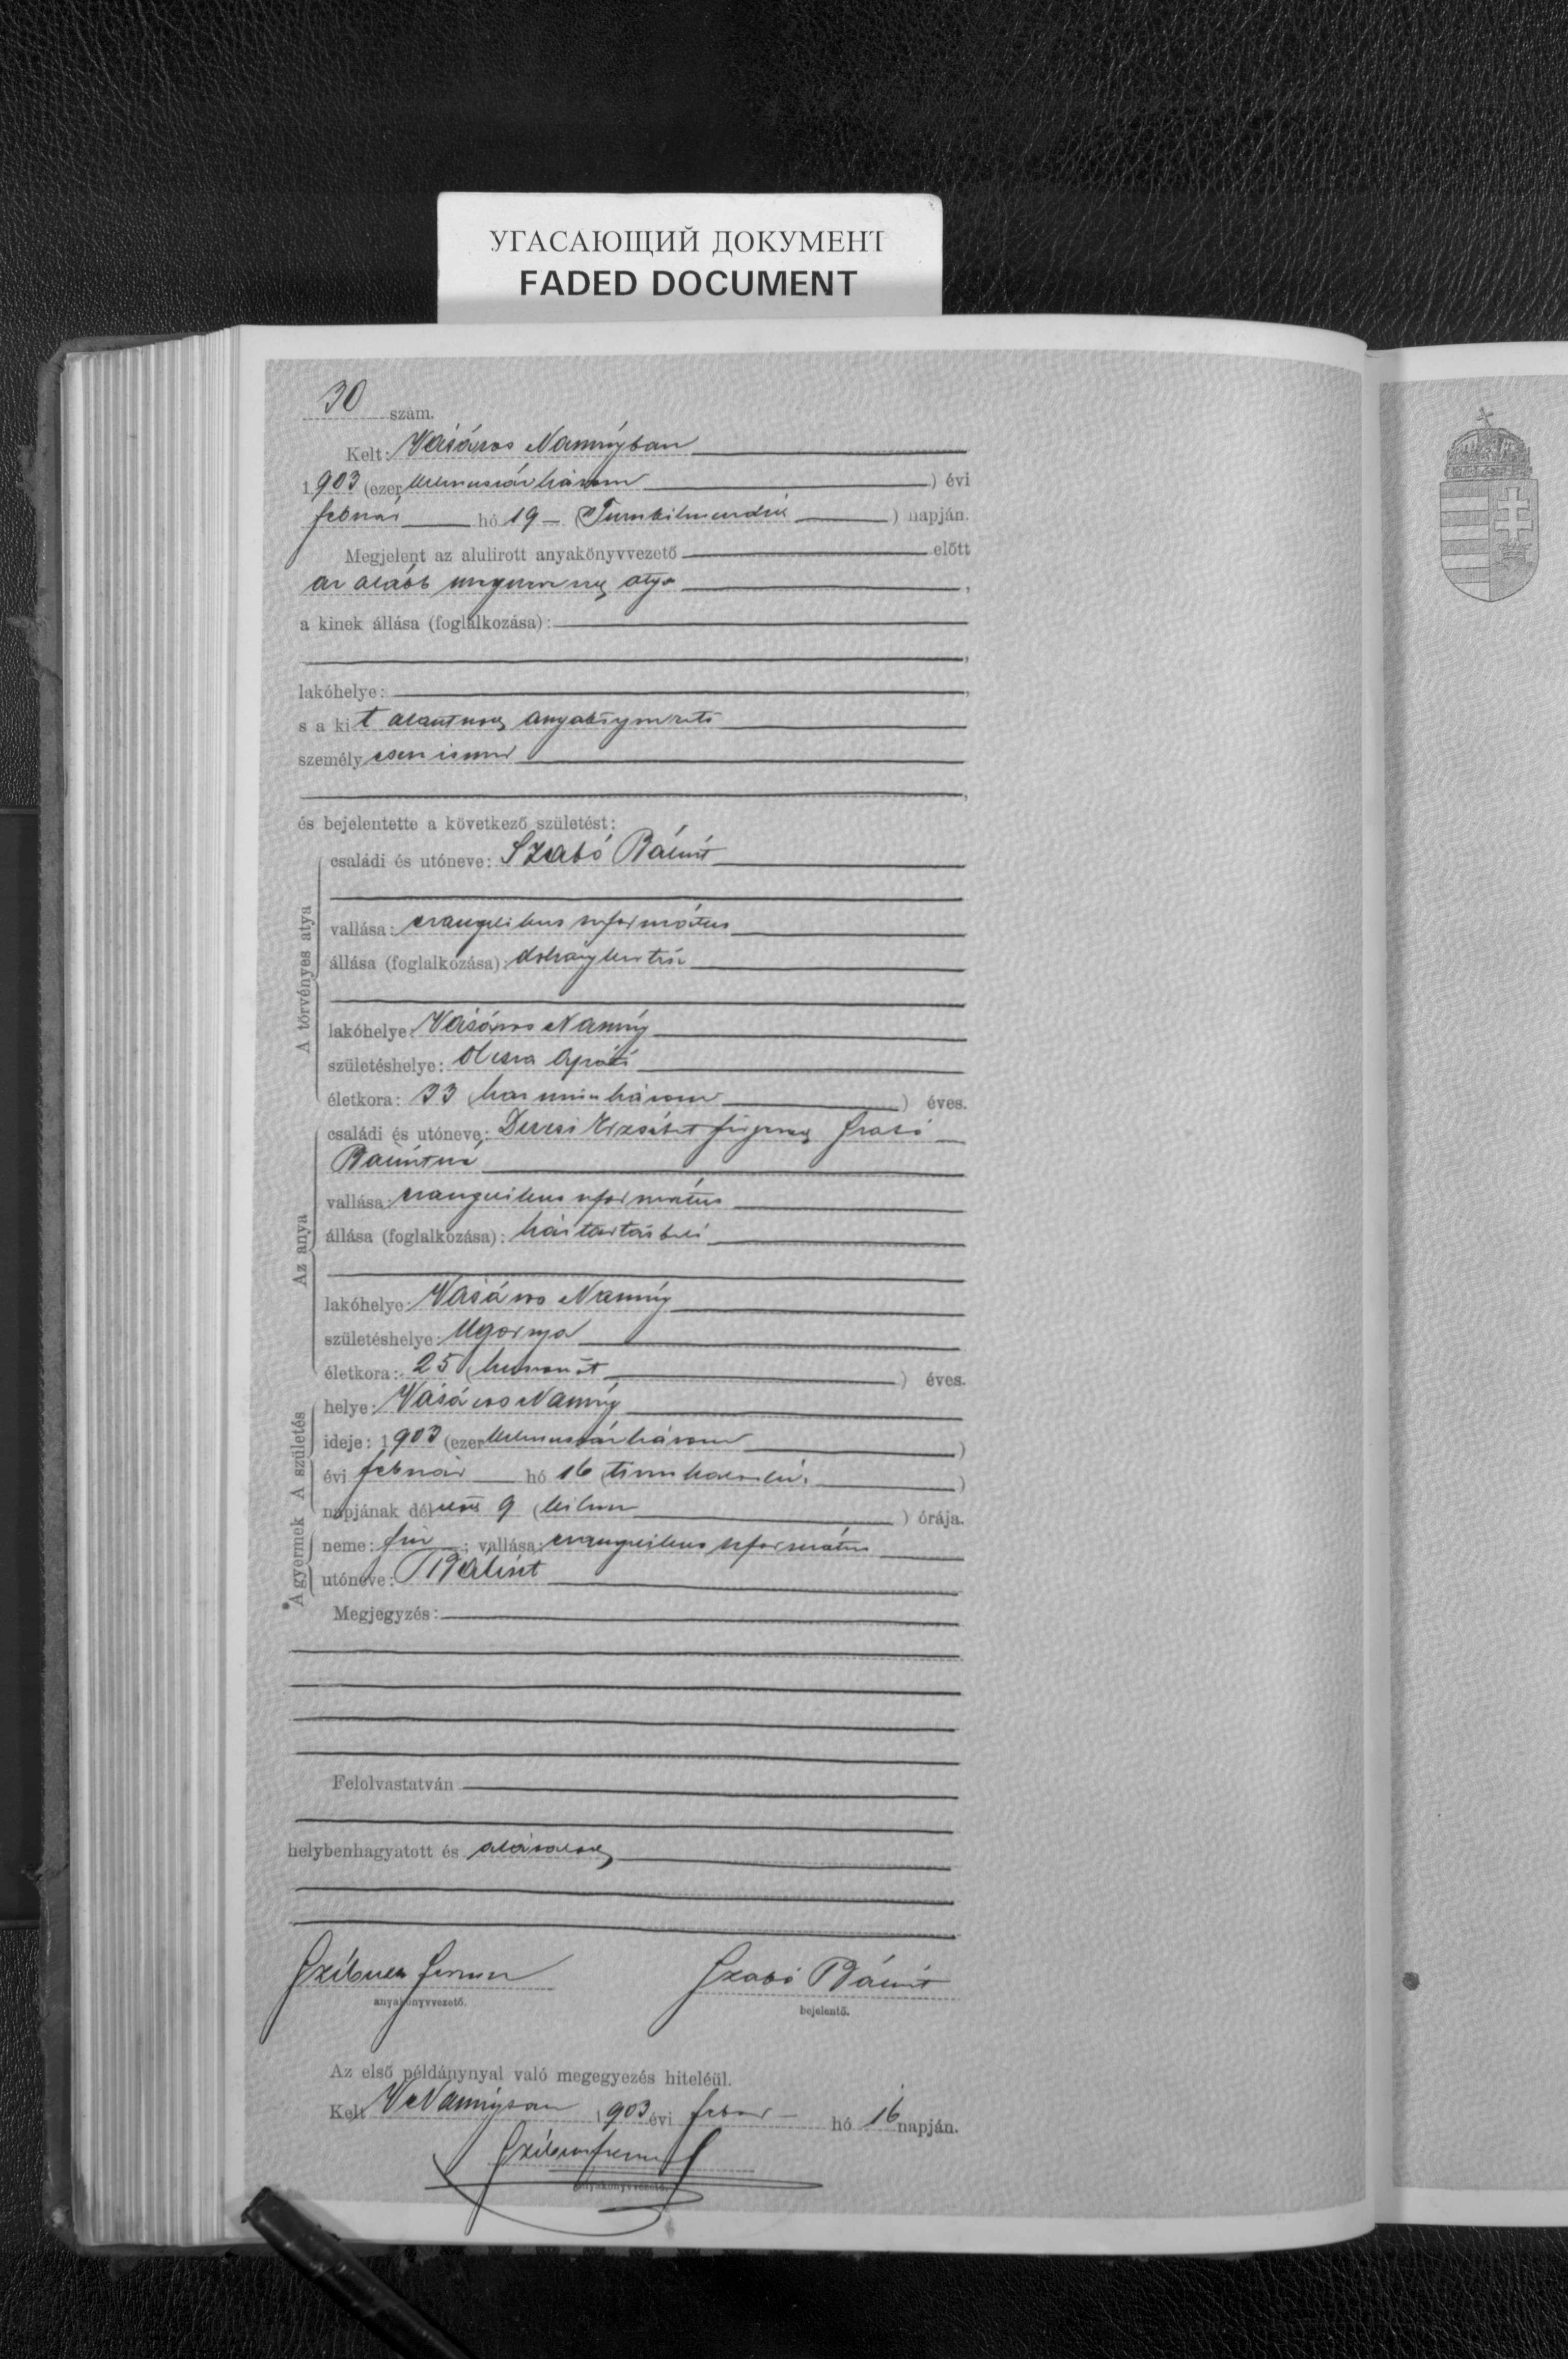 УГАСАЮЩИЙ ДОКУМЕНТ
FADED DOCUMENT
30 szám.
Kelt: Vásáros Naményban
1903 (ezerkilencszázhárom ) évi
február hó 19 – (Tizenkilencedik ) napján.
Megjelent az alulirott anyakönyvvezető előtt
az alább megnevezett atya ,
a kinek állása (foglalkozása):
,
lakóhelye: ,
s a kit alantírott anyakönyvvezető
személyesen ismer
,
és bejelentette a következő születést:
A törvényes atya
családi és utóneve: Szabó Bálint
vallása: evangelikus református
állása (foglalkozása):
lakóhelye: Vásáros Namény
születéshelye: Olcsva Apáti
életkora: 33 (harminchárom ) éves.
Az anya
családi és utóneve: Erzsébet férjezett Szabó
Bálintné
vallása: evangelikus református
állása (foglalkozása): háztartásbeli
lakóhelye: Vásáros Namény
születéshelye: Ugornya
életkora: 25 (huszonöt ) éves.
A születés
helye: Vásáros Namény
ideje: 1903 (ezerkilencszázhárom )
évi február hó 16 (tizenhatodik )
napjának délelőtt 9 (kilenc ) órája.
A gyermek
neme: fiú ; vallása: evangelikus református
utóneve: Bálint
Megjegyzés:
Felolvastatván
helybenhagyatott és aláíratott
Ferenc Szabó Bálint
anyakönyvvezető. bejelentő.
Az első példánynyal való megegyezés hiteléül.
Kelt V Naményban 1903 évi febr – hó 16 napján.
anyakönyvvezető.